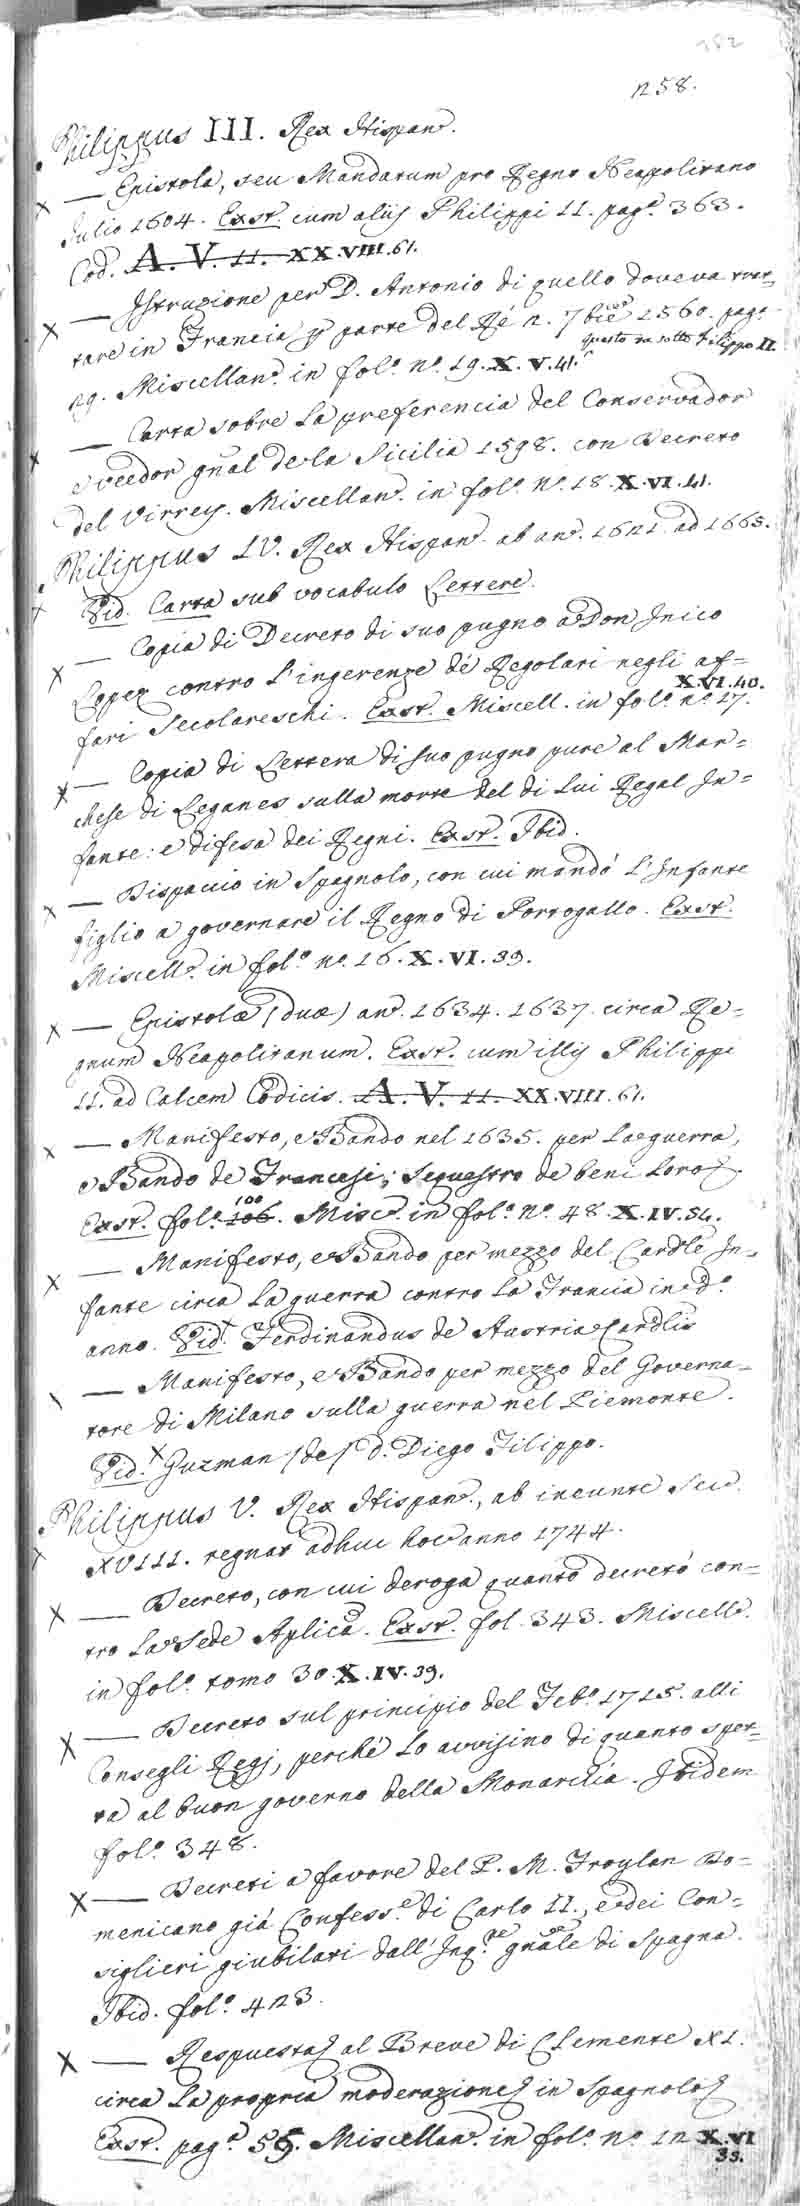 182
258.
Philippus III. Rex Hispan.
— Epistola, seu Mandatum pro Regno Neapolitano
Julio 1604. Exst. cum alijs Philippi II. pag.ª 363.
Cod. A. V. 11. XX.VIII.61.
— Istruzione per D. Antonio di quello doveva trat-
tare in Francia p parte del Rè 2. 7bre 1560. pag.ª
questo va sotto Filippo II.
29. Miscellan. in fol.º n.º 19. X. V. 41.
— Carta sobre la preferencia del Conservador
e veedor gñal de la Sicilia 1598. con Decreto
del Virrey. Miscellan. in fol.º n.º 18. X. VI. 41.
Philippus IV. Rex Hispan. ab an. 1621. ad 1665.
Vid. Carta sub vocabulo Lettere.
— Copia di Decreto di suo pugno a Don Inico
Lopez contro l'ingerenze dè Regolari negli af=
fari Secolareschi. Exst. Miscell. in fol.º n.º 17.
X.VI.40.
— Copia di Lettera di suo pugno pure al Mar=
chese di Leganes sulla morte del di lui Regal In=
fante: e difesa dei Regni. Exst. Ibid.
— Dispaccio in Spagnolo, con cui mandò l'Infante
figlio a governare il Regno di Portogallo. Exst.
Miscell. in fol.º n.º 16. X. VI. 39.
— Epistolæ (duæ) an. 1634. 1637. circa Re=
gnum Neapolitanum. Exst. cum illis Philippi
II. ad Calcem Codicis. A. V. 11. XX.VIII. 61.
— Manifesto, e Bando nel 1635. per la guerra,
e Bando de Francesi; sequestro de beni loro.
Exst. fol.º 106. 100 Misc. in fol.º n.º 48. X. IV. 54.
— Manifesto, e Bando per mezzo del Cardle In=
fante circa la guerra contro la Francia in d.º
anno. Vid. Ferdinandus de Austria Cardlis
— Manifesto, e Bando per mezzo del Governa=
tore di Milano sulla guerra nel Piemonte.
Vid. Guzman (de) D. Diego Filippo.
Philippus V. Rex Hispan., ab ineunte Sec.
XVIII. regnat adhuc hoc anno 1744.
— Decreto, con cui deroga quanto decretò con=
tro la Sede Aplica. Exst. fol. 343. Miscell.
in fol.º tomo 30. X. IV. 39.
— Decreto sul principio del Feb.º 1715. alli
Consegli Regj, perchè lo avvisino di quanto spet=
ta al buon governo della Monarchia. Ibidem
fol.º 348.
— Decreti a favore del P. M. Froylan Do=
menicano già Confess.e di Carlo II., e dei Con=
siglieri giubilati dall'Inq.ne gñale di Spagna.
Ibid. fol.º 423.
— Respuesta al Breve di Clemente XI.
circa la propria moderazione in Spagnolo
Exst. pag.ª 55. Miscellan. in fol.º n.º 12 X. VI
35.